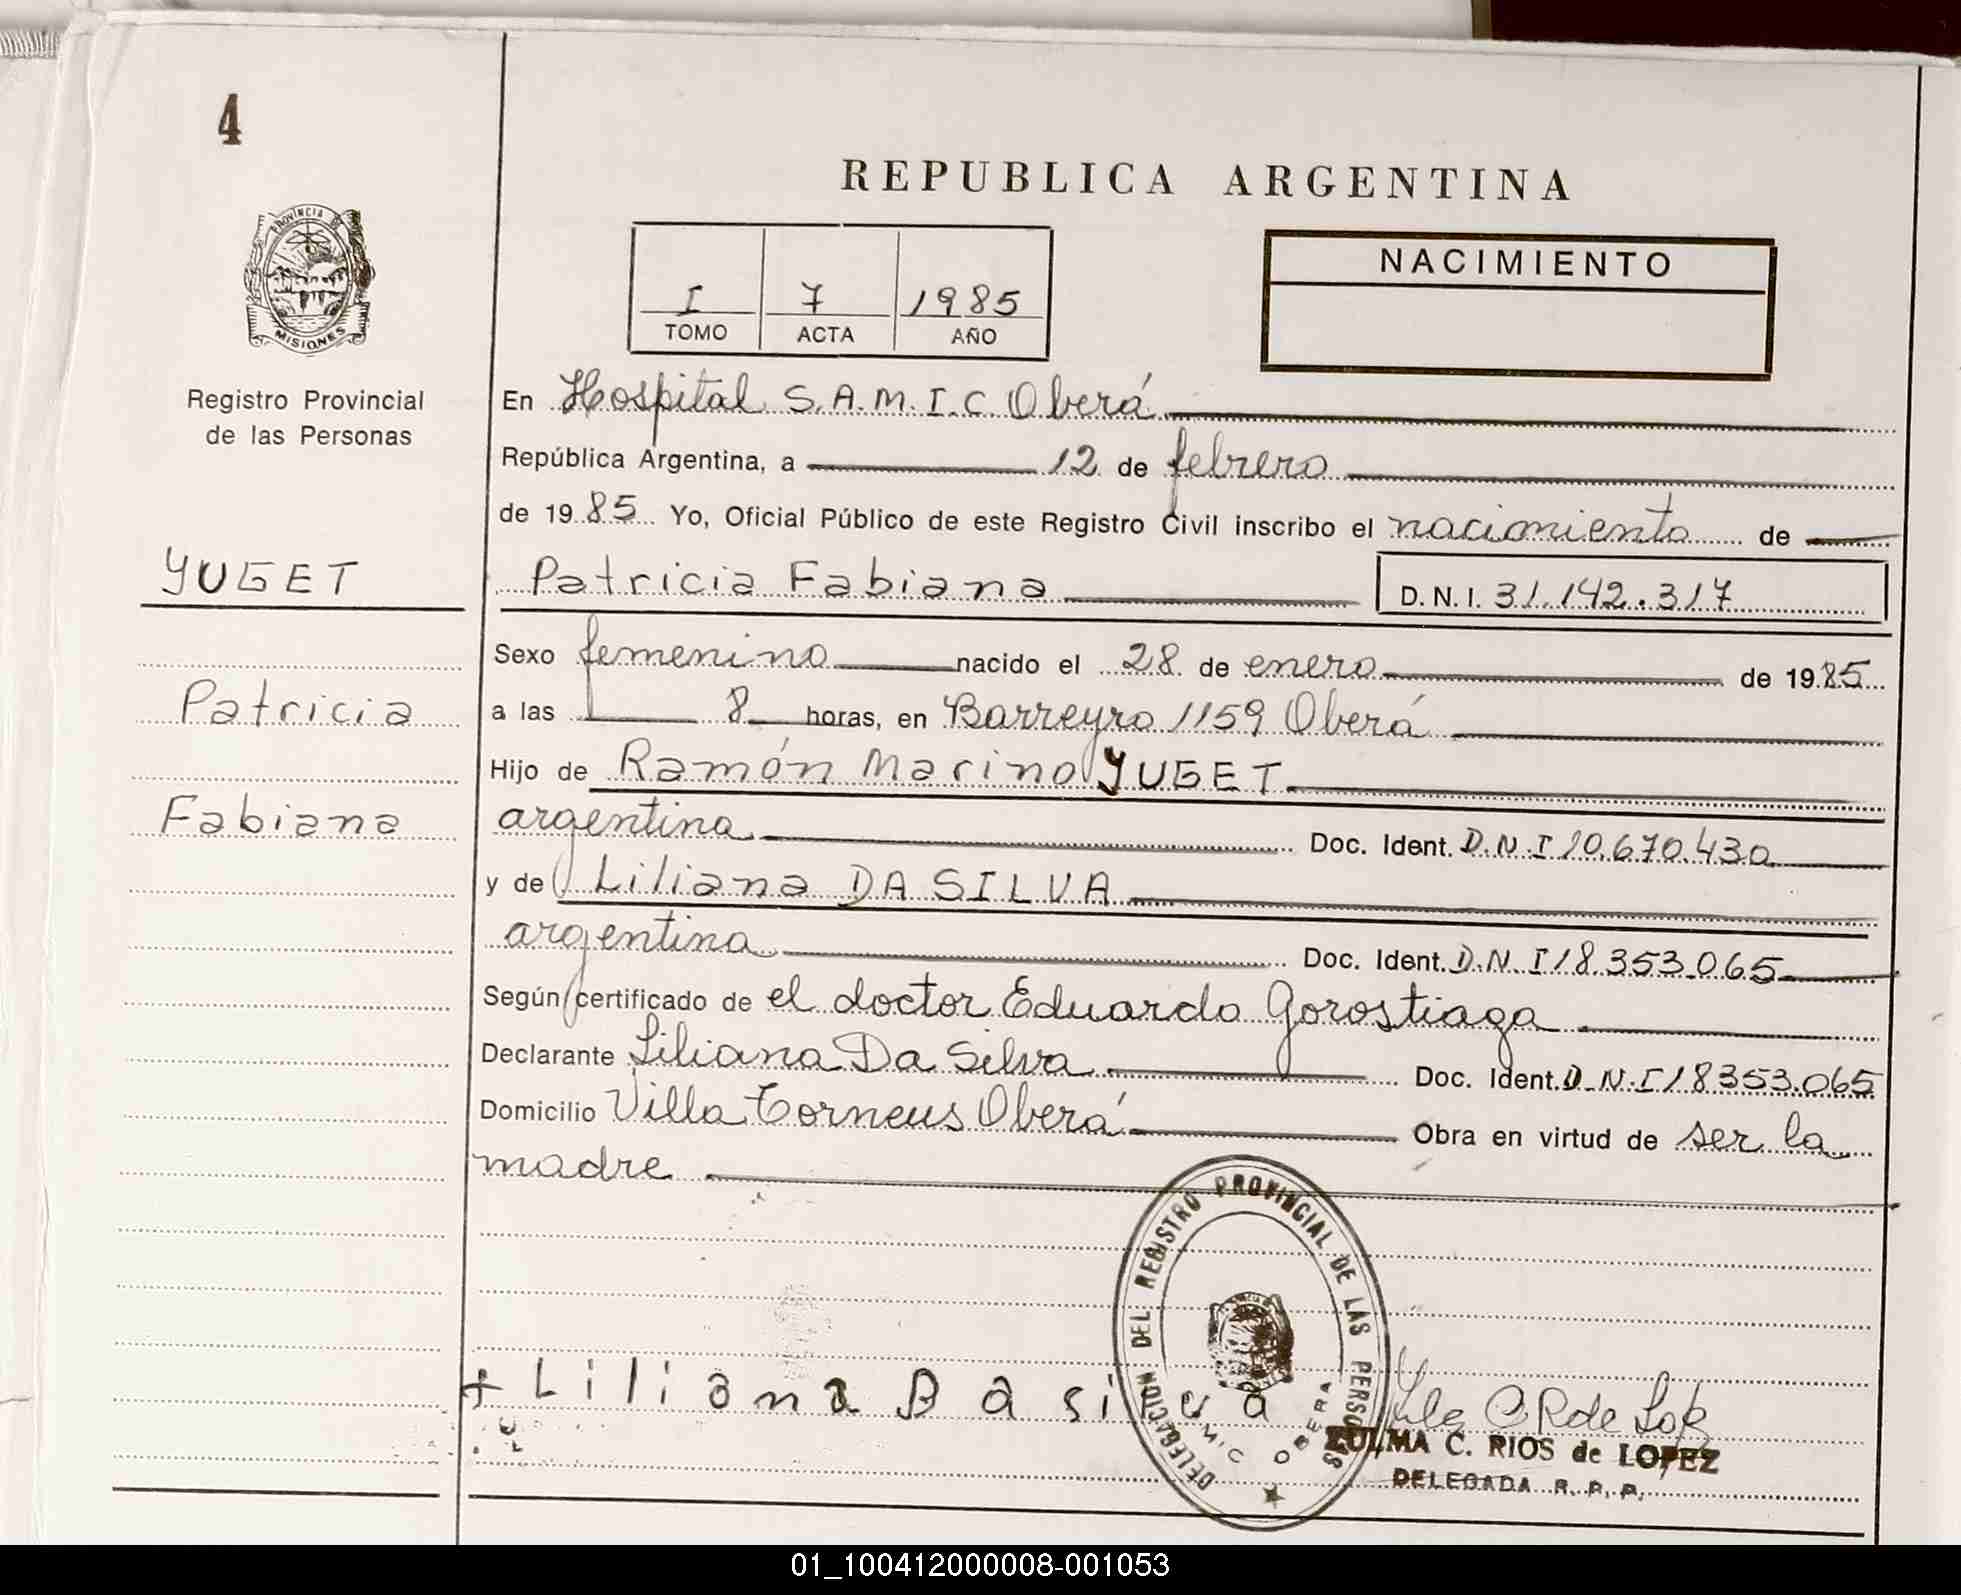 4
REPUBLICA ARGENTINA
PROVINCIA DE
MISIONES
Registro Provincial
de las Personas
I 7 1985
TOMO ACTA AÑO
NACIMIENTO
En Hospital S.A.M.I.C. Oberá
República Argentina, a 12 de febrero
de 1985 Yo, Oficial Público de este Registro Civil inscribo el nacimiento de
YUGET
Patricia Fabiana D.N.I. 31.142.317
Sexo femenino nacido el 28 de enero de 1985
Patricia
a las 8 horas, en Barreyro 1159 Oberá
Hijo de Ramón Marino YUGET
Fabiana
argentina Doc. Ident. D.N.I 10.670.430
y de Liliana DA SILVA
argentina Doc. Ident. D.N.I 18.353.065
Según certificado de el doctor Eduardo Gorostiaga
Declarante Liliana Da Silva Doc. Ident. D.N.I 18353.065
Domicilio Villa Torneus Oberá Obra en virtud de ser la
madre
DELEGACION DEL REGISTRO PROVINCIAL DE LAS PERSONAS
OBERA
+ Liliana Da si va
ZULMA C. RIOS de LOPEZ
DELEGADA R. P. P.
01_100412000008-001053